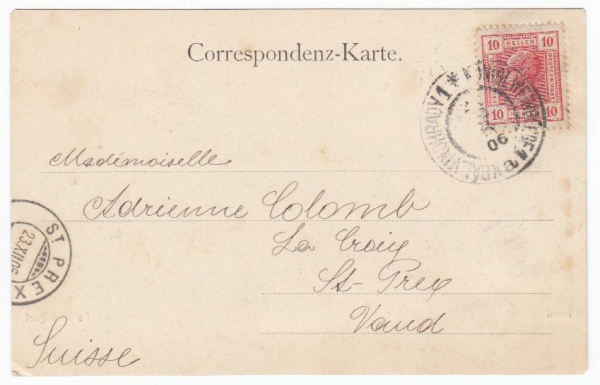 Correspondenz-Karte.
10 HELLER 10
10 10
KRÁL. VINOHRADY 1
06
Mademoiselle
Adrienne Colomb
La Craiy
St-Prex
Vaud
Suisse
ST PREX
23.XII.06